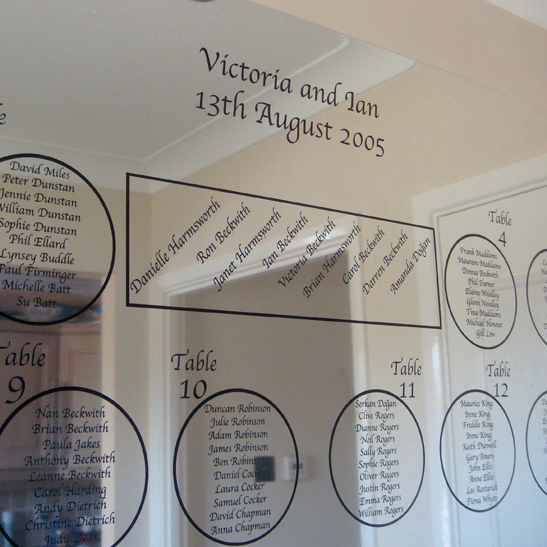 Victoria and Ian
13th August 2005
Danielle Harmsworth
Ron Beckwith
Janet Harmsworth
Ian Beckwith
Victoria Beckwith
Brian Harmsworth
Carol Beckwith
Darren Beckwith
Amanda Doğan
David Miles
Peter Dunstan
Jennie Dunstan
William Dunstan
Sophie Dunstan
Phil Ellard
Lynsey Buddle
Paul Firminger
Michelle Batt
Su Batt
Table
4
Frank Maddams
Maureen Maddams
Donna Beckwith
Phil Turner
Elaine Woolley
Glenn Woolley
Tina Maddams
Michael Honour
Gill Low
Table
9
Nan Beckwith
Brian Beckwith
Paula Jakes
Anthony Beckwith
Leanne Beckwith
Carol Harding
Andy Dietrich
Christine Dietrich
Judy
Table
10
Duncan Robinson
Julie Robinson
Adam Robinson
James Robinson
Ben Robinson
Daniel Cocker
Laura Cocker
Samuel Cocker
David Chapman
Anna Chapman
Table
11
Serkan Doğan
Clive Rogers
Dianne Rogers
Neil Rogers
Sally Rogers
Sophie Rogers
Oliver Rogers
Justin Rogers
Emma Rogers
William Rogers
Table
12
Maurice King
Irene King
Freddie King
Irene King
Keith
Gary Amers
John Ellis
Anne Ellis
Lee
Fiona